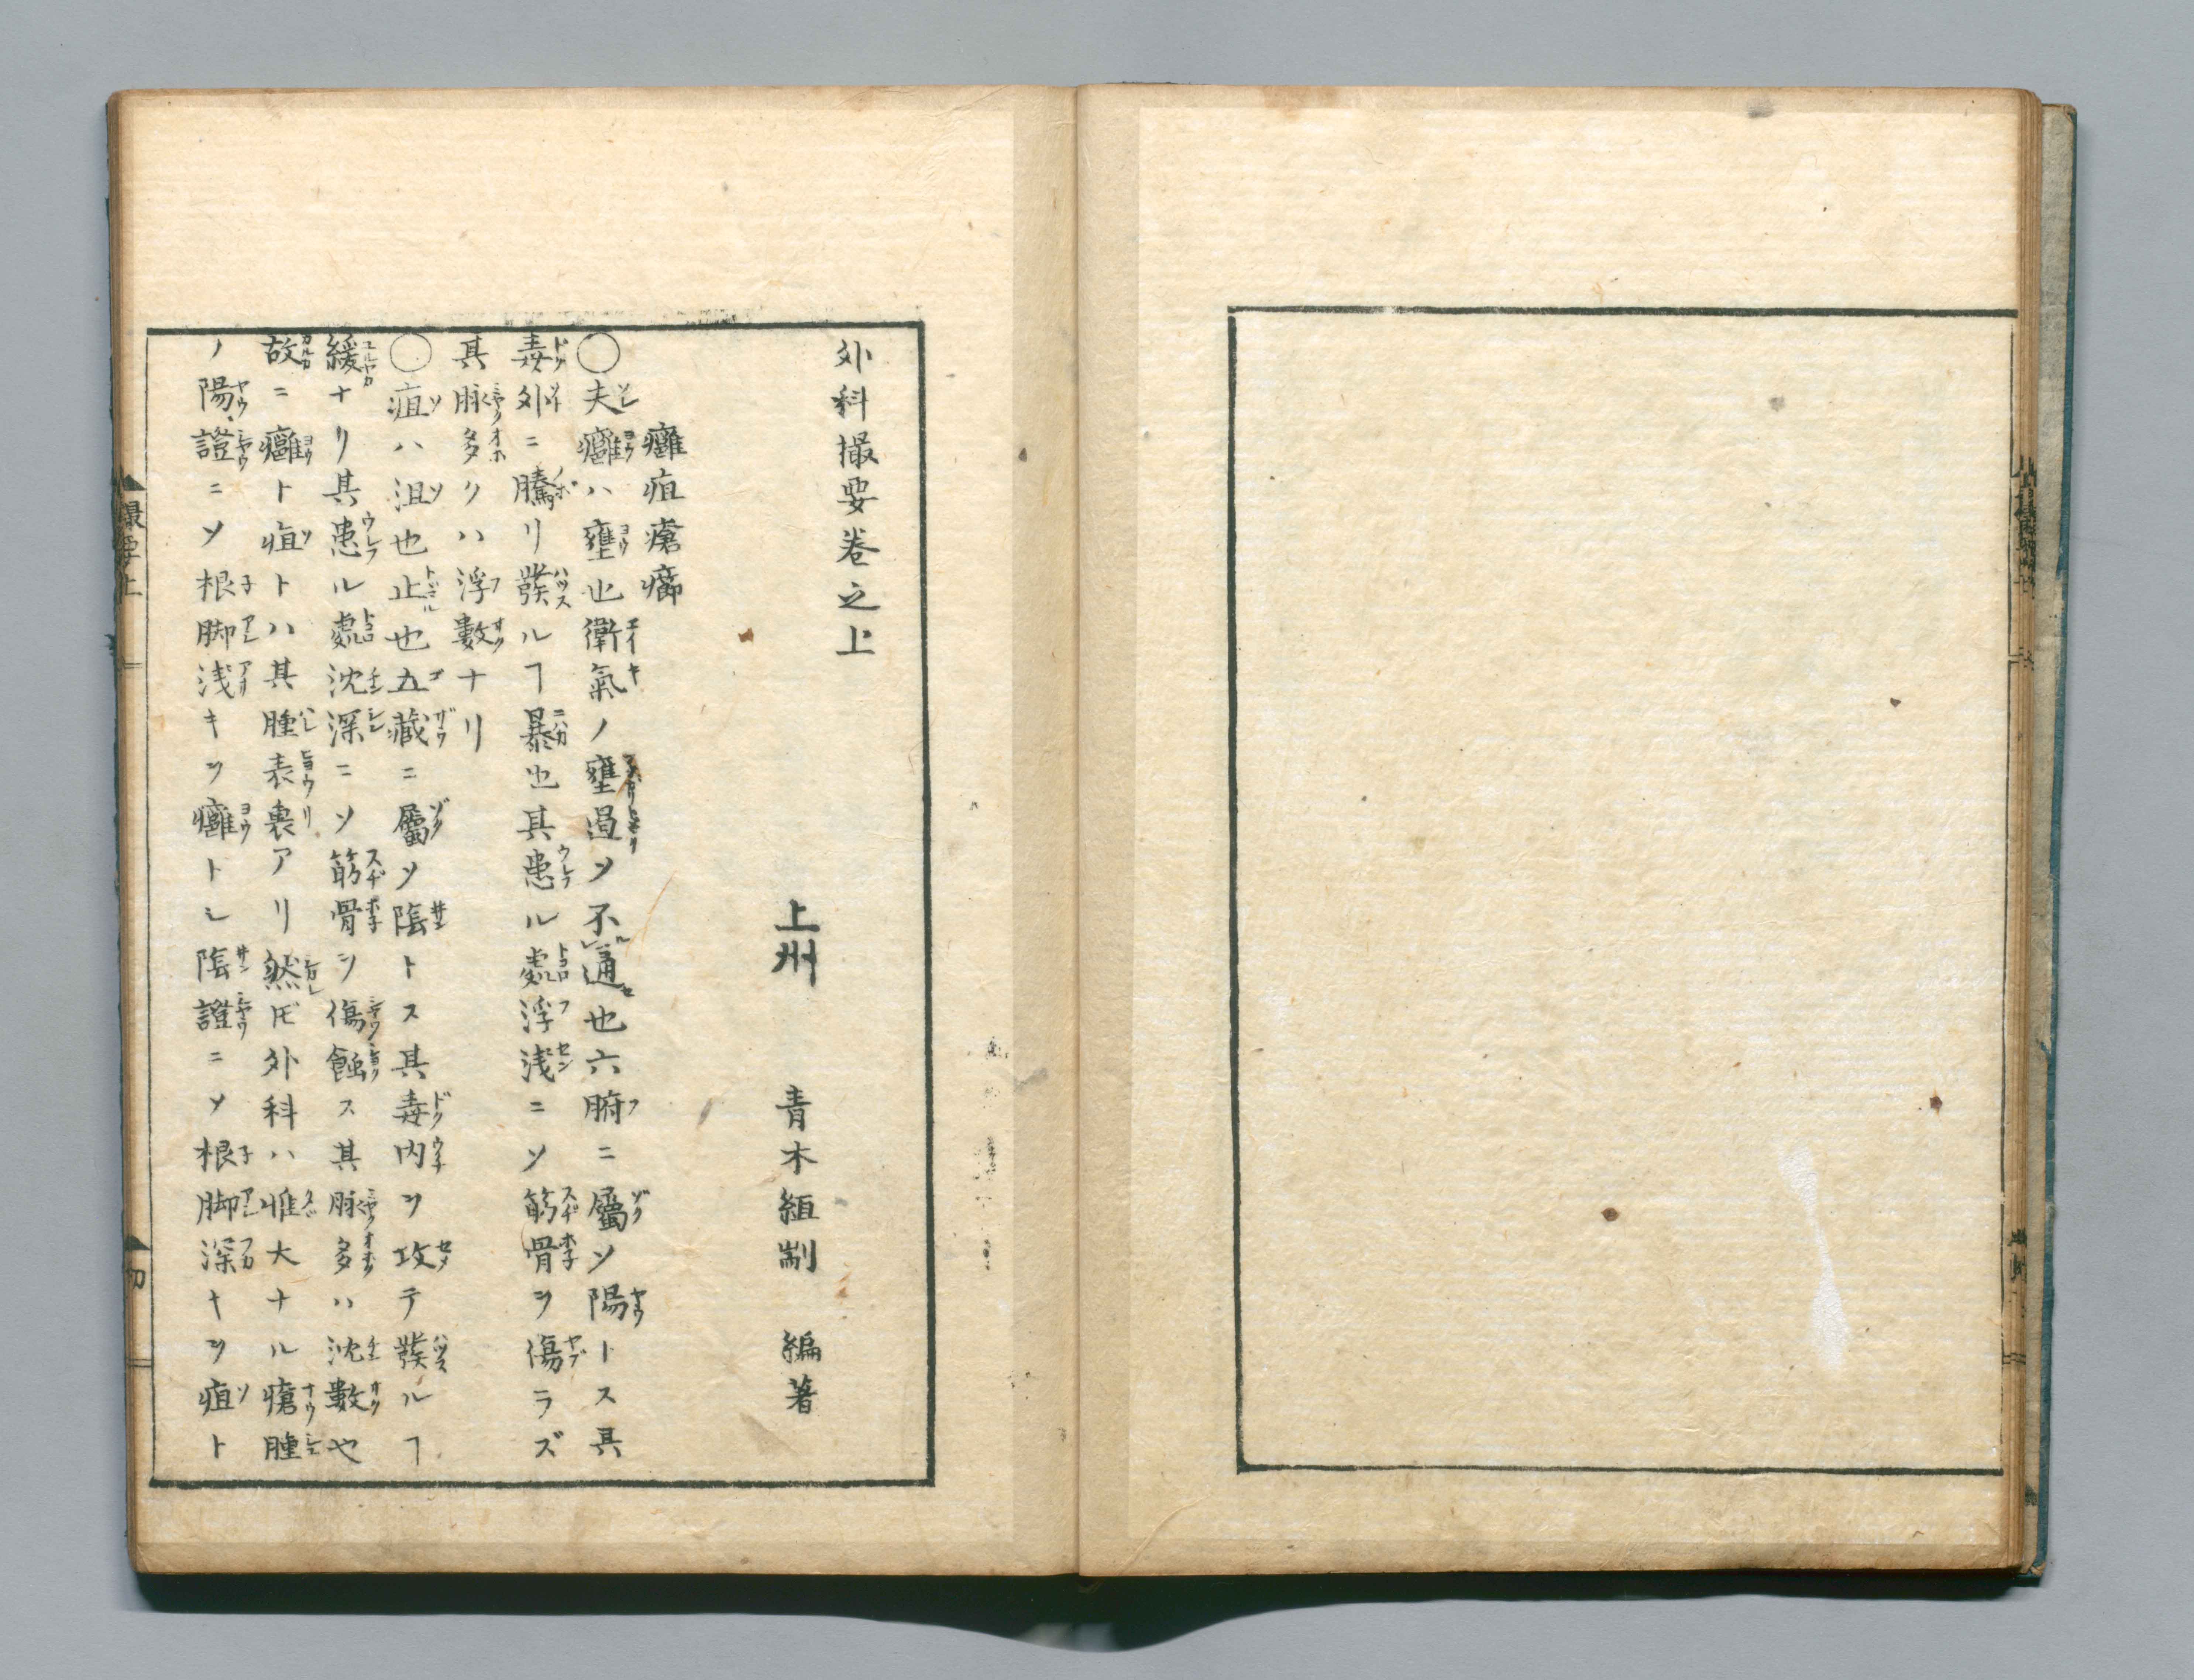 外科撮要卷之上
上州 青木絙剬 編著
癰疽瘡癤
○夫癰ハ壅也衛氣ノ壅遏ソ不レ通也六腑ニ屬ソ陽トス其
毒外ニ騰リ發ルヿ暴也其患ル處浮浅ニソ筋骨ヲ傷ラズ
其脉多クハ浮數ナリ
○疽ハ沮也止也五蔵ニ屬ソ陰トス其毒内ヲ攻テ發ルヿ
緩ナリ其患ル處沈深ニソ筋骨ヲ傷蝕ス其脉多ハ沈數也
故ニ癰ト疽トハ其腫表裏アリ然𪜈外科ハ惟大ナル瘡腫
ノ陽證ニソ根脚浅キヲ癰トシ陰證ニソ根脚深キヲ疽ト
撮要上